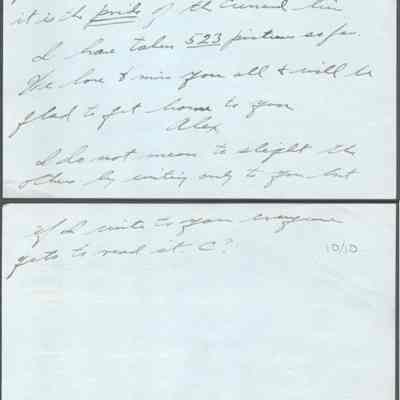 it is the pride of the Cunard line
I have taken 523 pictures so far.
We love & miss you all & will be
glad to get home to you
Alex
I do not mean to slight the
others by writing only to you but
if I write to you everyone
gets to read it C?
10/10